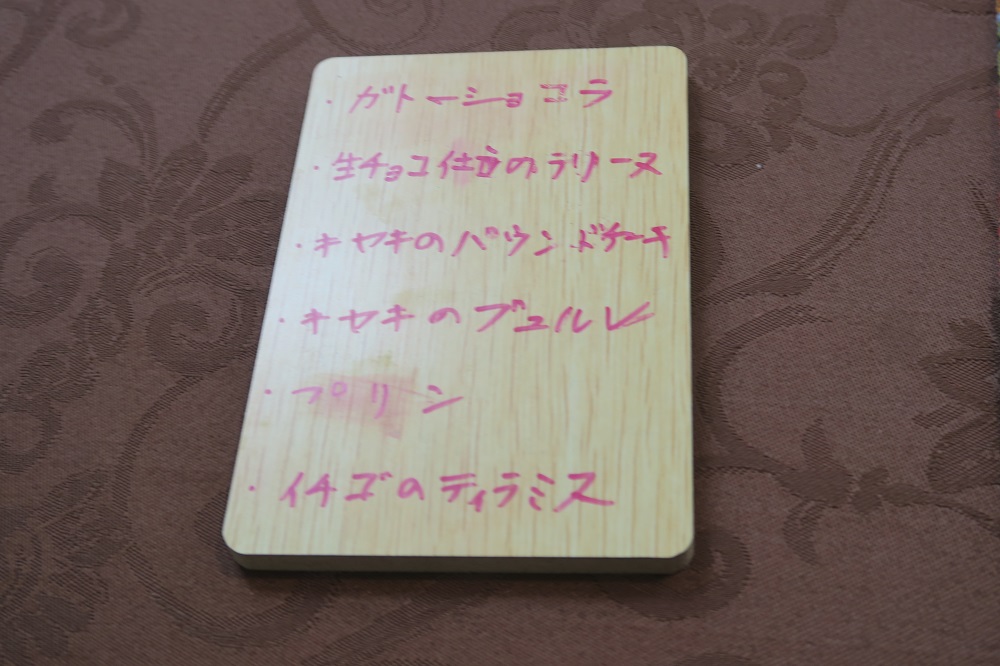 ・ガトーショコラ
・生チョコ仕立のテリーヌ
・キヤキのパウンドケーキ
・キヤキのブュルレ
・プリン
・イチゴのティラミス